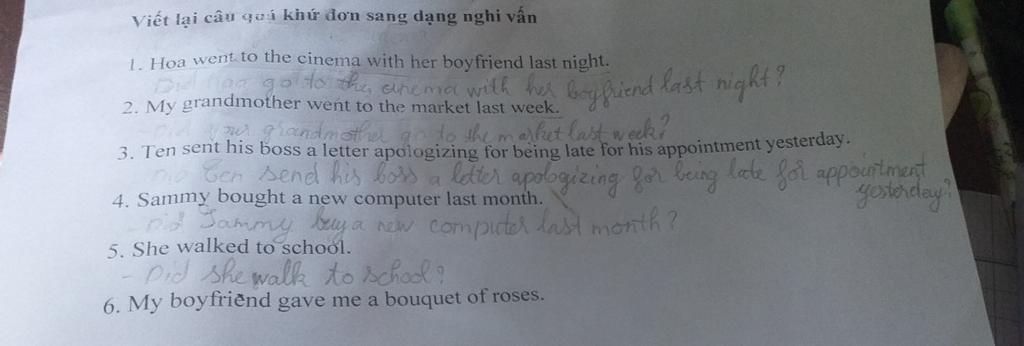 Viết lại câu quá khứ đơn sang dạng nghi vấn
1. Hoa went to the cinema with her boyfriend last night.
Did Hoa go to the cinema with her boyfriend last night?
2. My grandmother went to the market last week.
- Did your grandmother go to the market last week?
3. Ten sent his boss a letter apologizing for being late for his appointment yesterday.
Did Ten send his boss a letter apologizing for being late for appointment
yesterday?
4. Sammy bought a new computer last month.
- Did Sammy buy a new computer last month?
5. She walked to school.
- Did she walk to school?
6. My boyfriend gave me a bouquet of roses.